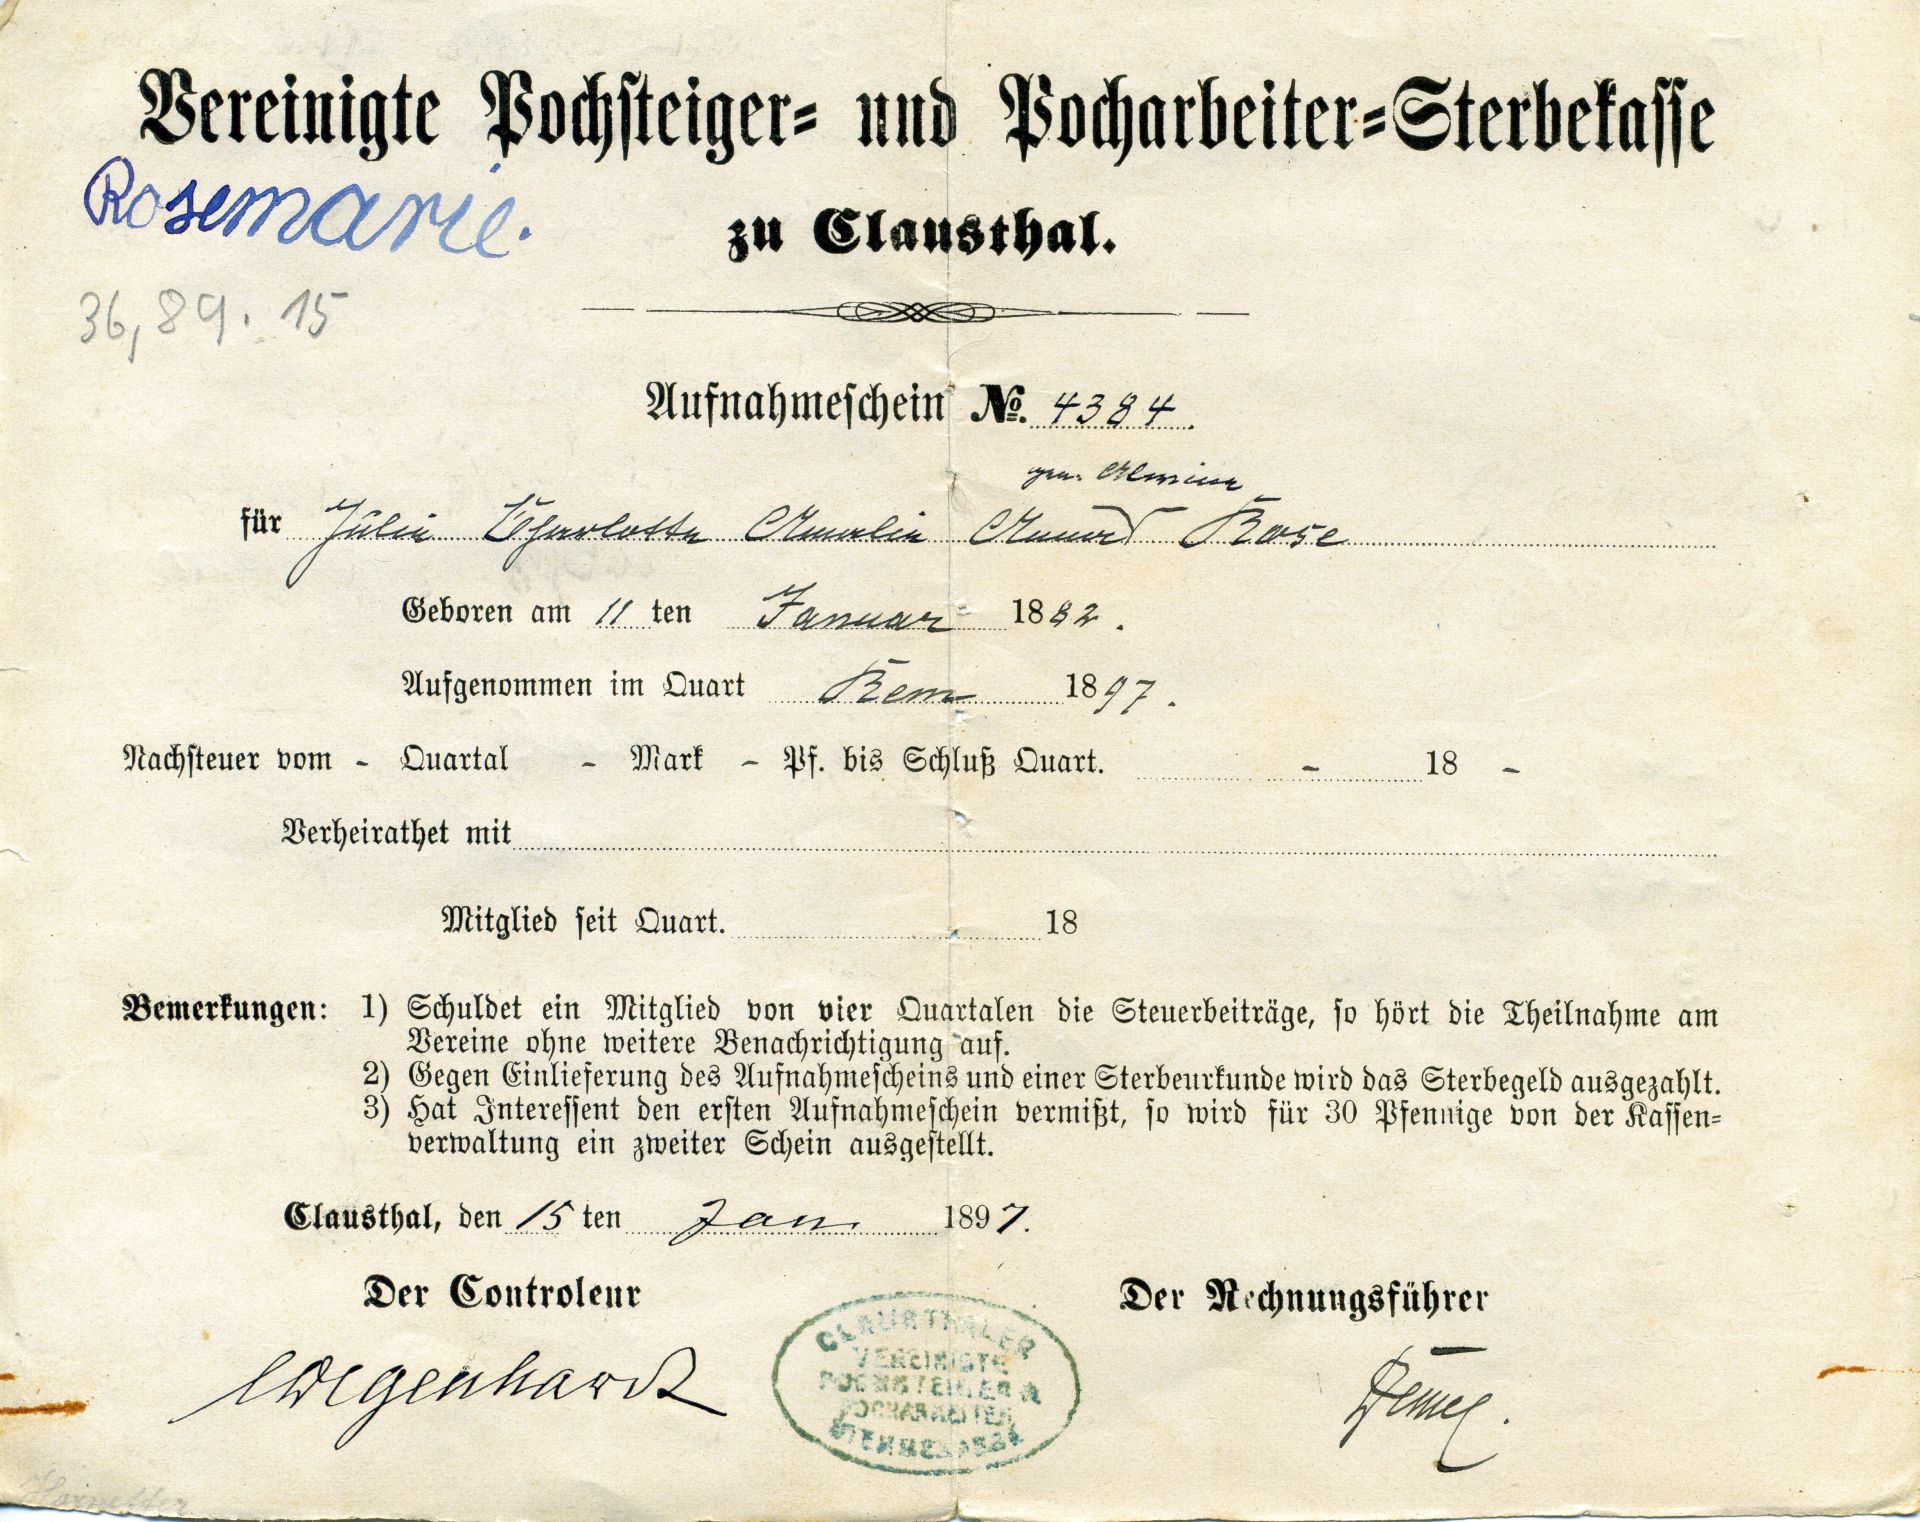 Vereinigte Pochsteiger- und Pocharbeiter-Sterbekasse
Rosemarie.
zu Clausthal.
36,89. 15
Aufnahmeschein No. 4384.
gen. Alwine
für Julie Charlotte Amalie Rose
Geboren am 11 ten Januar 1882.
Aufgenommen im Quart Rem 1897.
Nachsteuer vom - Quartal - Mark - Pf. bis Schluß Quart. - 18 -
Verheirathet mit
Mitglied seit Quart. 18
Bemerkungen: 1) Schuldet ein Mitglied von vier Quartalen die Steuerbeiträge, so hört die Theilnahme am
Vereine ohne weitere Benachrichtigung auf.
2) Gegen Einlieferung des Aufnahmescheins und einer Sterbeurkunde wird das Sterbegeld ausgezahlt.
3) Hat Interessent den ersten Aufnahmeschein vermißt, so wird für 30 Pfennige von der Kassen-
verwaltung ein zweiter Schein ausgestellt.
Clausthal, den 15 ten Jan. 1897.
Der Controleur Der Rechnungsführer
CLAUSTHALER
VEREINIGTE
POCHSTEIGER &
POCHARBEITER
STERBEKASSE